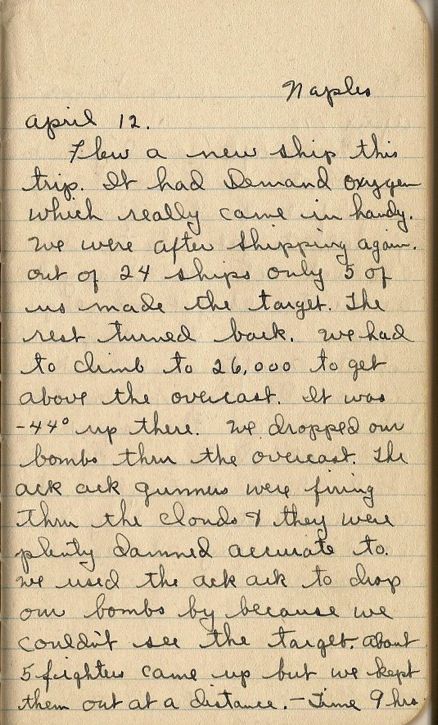 Naples
April 12.
Flew a new ship this
trip. It had Demand oxygen
which really came in handy.
We were after shipping again.
out of 24 ships only 5 of
us made the target. The
rest turned back. We had
to climb to 26,000 to get
above the overcast. It was
-44° up there. We dropped our
bombs thru the overcast. The
ack ack gunners were firing
thru the clouds & they were
plenty damned accurate to.
We used the ack ack to drop
our bombs by because we
couldn't see the target. About
5 fighters came up but we kept
them out at a distance. - Time 9 hrs